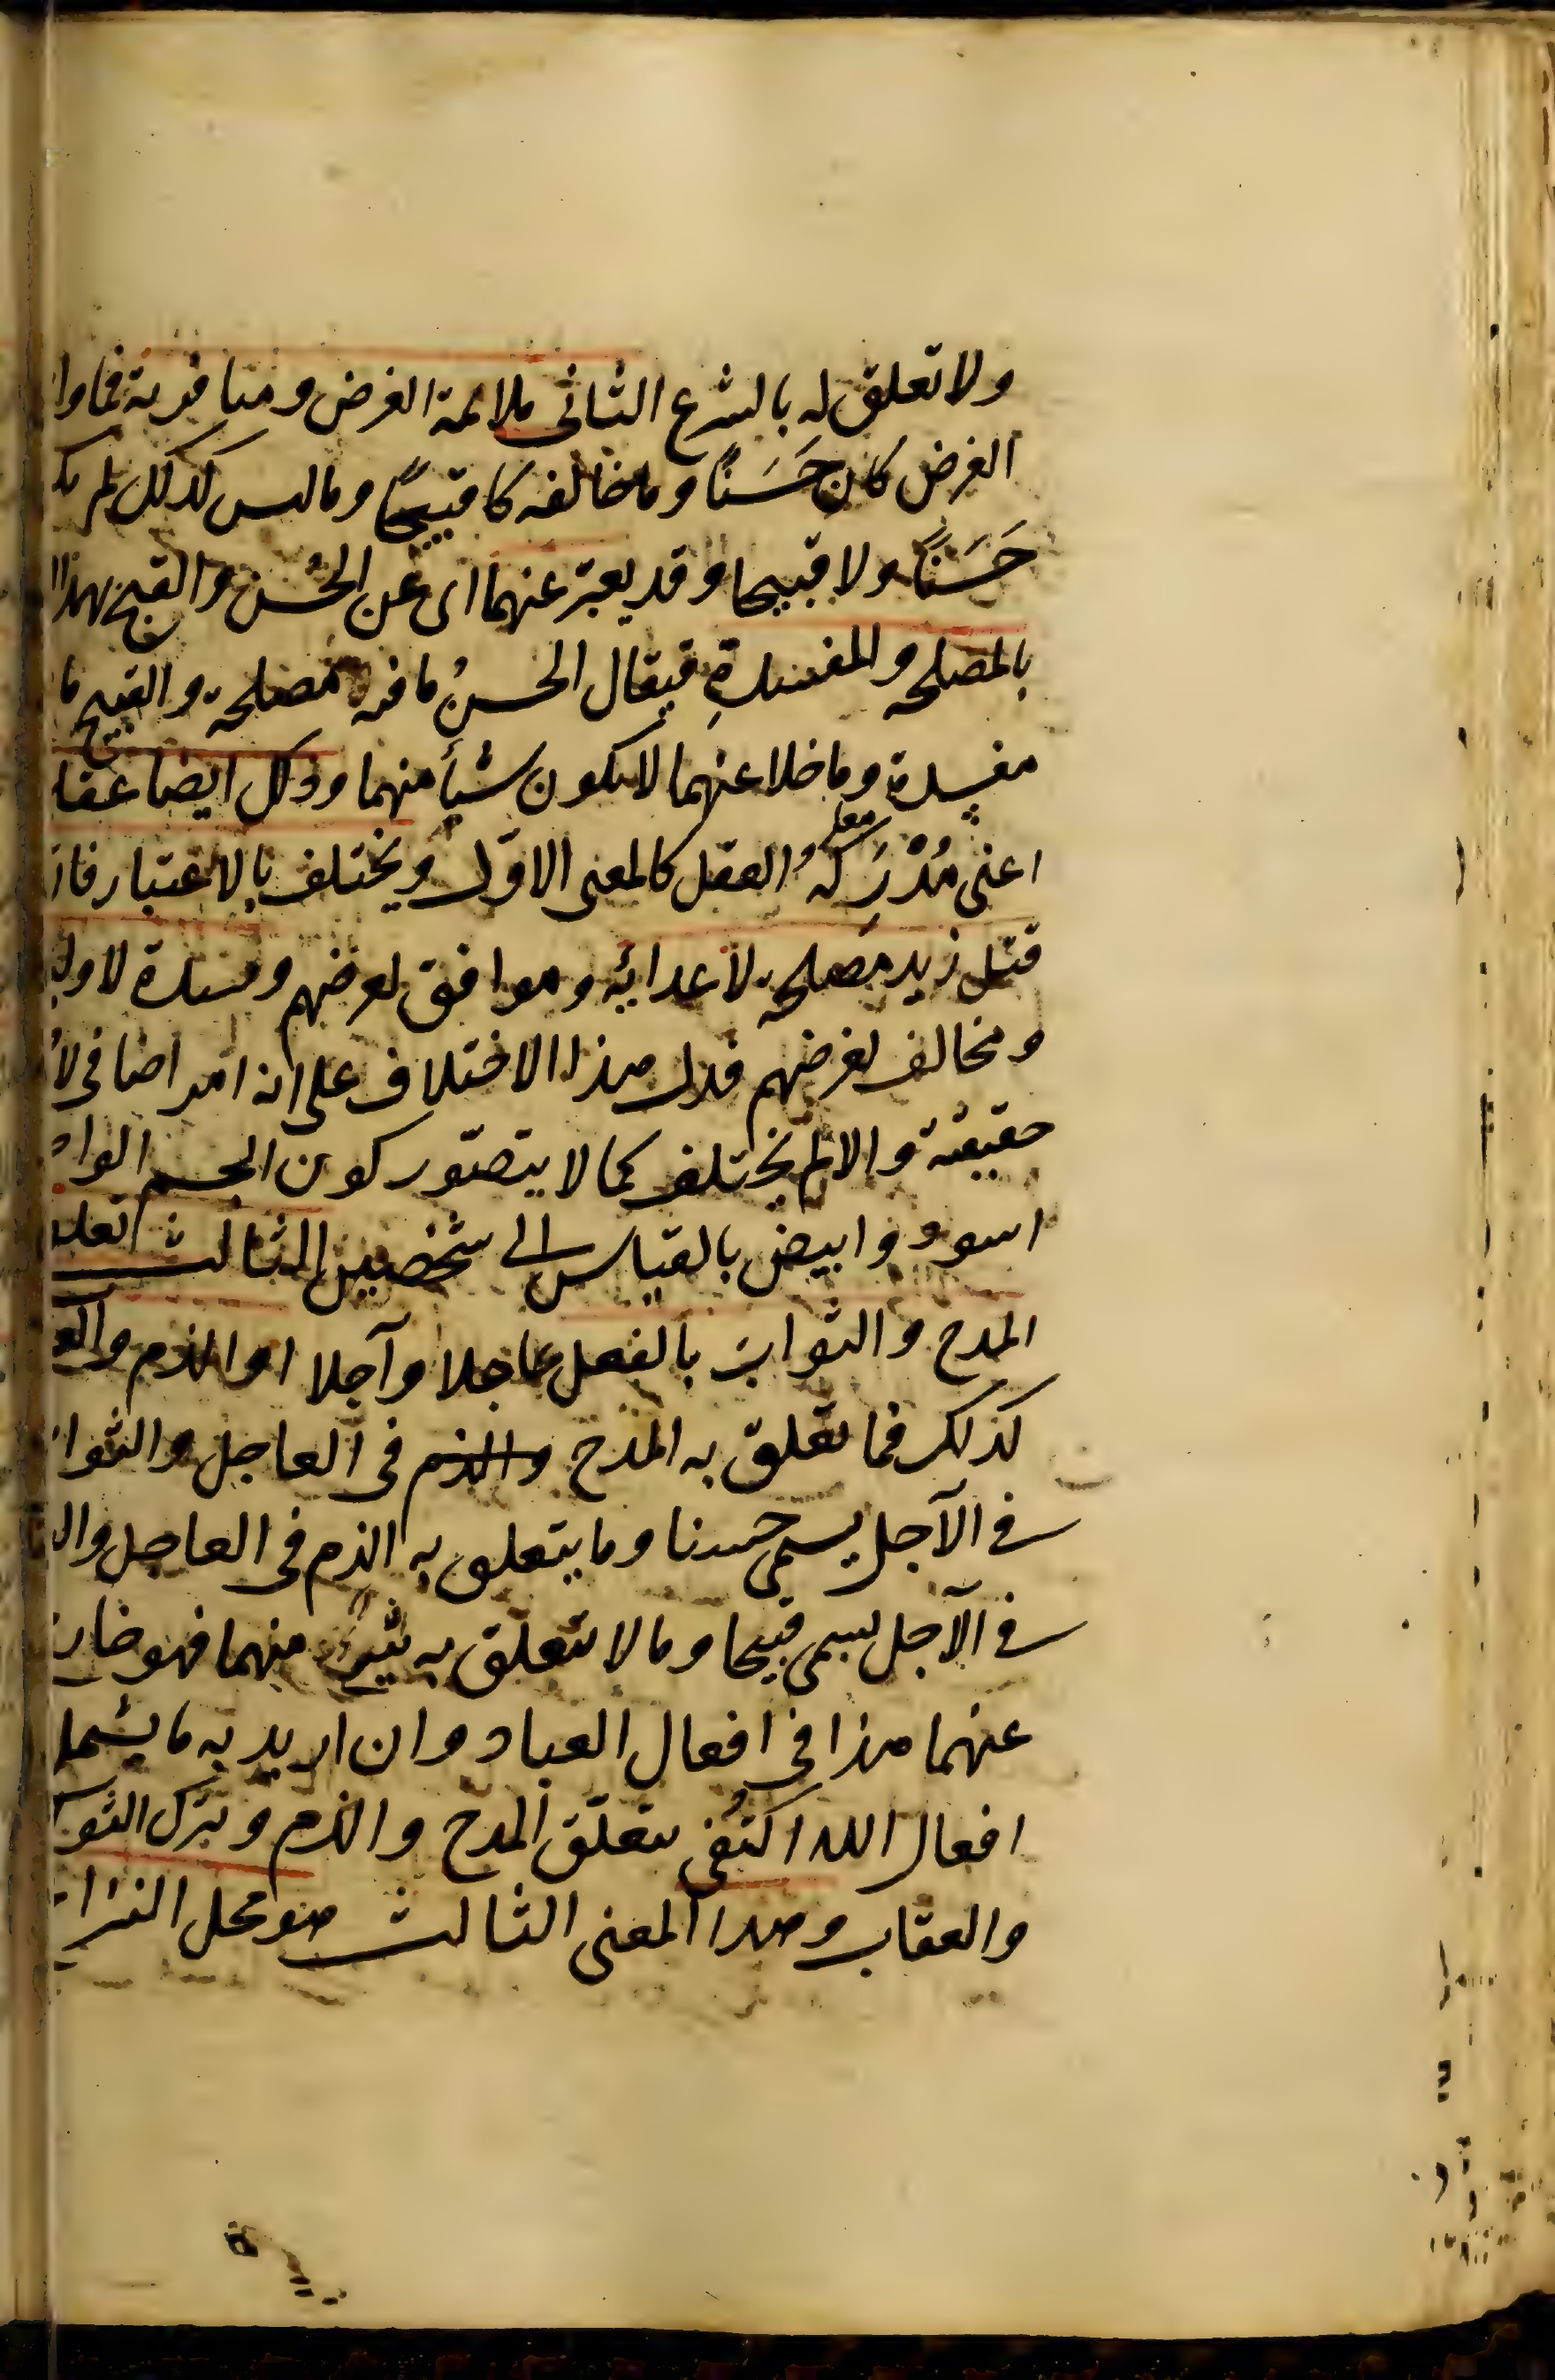 ولا تعلق له بالشرع الثانى ملائمة الغرض ومنافرته فما وا
الغرض كان حَسَنًا وما خالفه كا قبيحًا وما ليس كذلك لم يك
حَسَنًا ولا قبيحا وقد يعبّر عنهما اى عن الحُسن والقبح بهذا ا
بالمصلحه والمفسدةِ فيقال الحسنُ ما فيه مصلحة والقبيح ما
مفسدة وما خلا عنهما لا يكون شيأ منهما وذلك ايضا عقلى
اعنى مُدْرَكهُ العقل كالمعنى الاوّل ويختلف بالاعتبار فان
قتل زيد مصلحة لاعدائه وموافق لغرضهم ومفسدة لاوليا
ومخالف لغرضهم فدل هذا الاختلاف على انه امر اضافى لا
حقيقته والا لم يختلف كما لا يتصوّر كون الجسم الوا
اسود وابيض بالقياس الى شخصين الثالث تعلق
المدح والثواب بالفعل عاجلا وآجلا او الذم والع
كذلك فما تعلق به المدح والذم فى العاجل والثوا
فى الآجل يسمى حسنا وما يتعلق به الذم فى العاجل وال
فى الآجل يسمى قبيحا وما لا يتعلق به شئ منهما فهو خار
عنهما هذا فى افعال العباد وان اريد به ما يشمل
افعال الله اكتُفى بتعلّق المدح والذم وترك الثو
والعقاب وهذا المعنى الثالث هو محل النزا